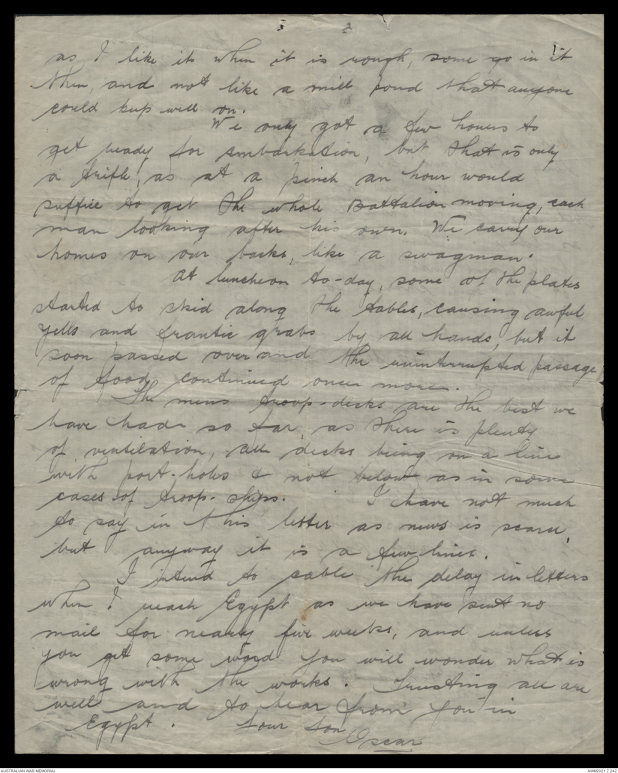 3
as I like it when it is rough, some go in it
then, and not like a mill pond that anyone
could keep well on.
We only got a few hours to
get ready for embarkation, but that is only
a trifle, as at a pinch an hour would
suffice to get the whole Battalion moving, each
man looking after his own. We carry our
homes on our backs, like a swagman.
At luncheon to-day, some of the plates
started to skid along the tables, causing awful
yells and frantic grabs by all hands, but it
soon passed over and the uninterrupted passage
of food, continued once more.
The mens troop-decks are the best we
have had so far, as there is plenty
of ventilation, all decks being on a line
with port-holes & not below as in some
cases of troop-ships. I have not much
to say in this letter as news is scarce,
but anyway it is a few lines.
I intend to cable the delay in letters
when I reach Egypt as we have sent no
mail for nearly five weeks, and unless
you get some word you will wonder what is
wrong with the works. Trusting all are
well and to hear from you in
Egypt. Your Son
Oscar
AUSTRALIAN WAR MEMORIAL